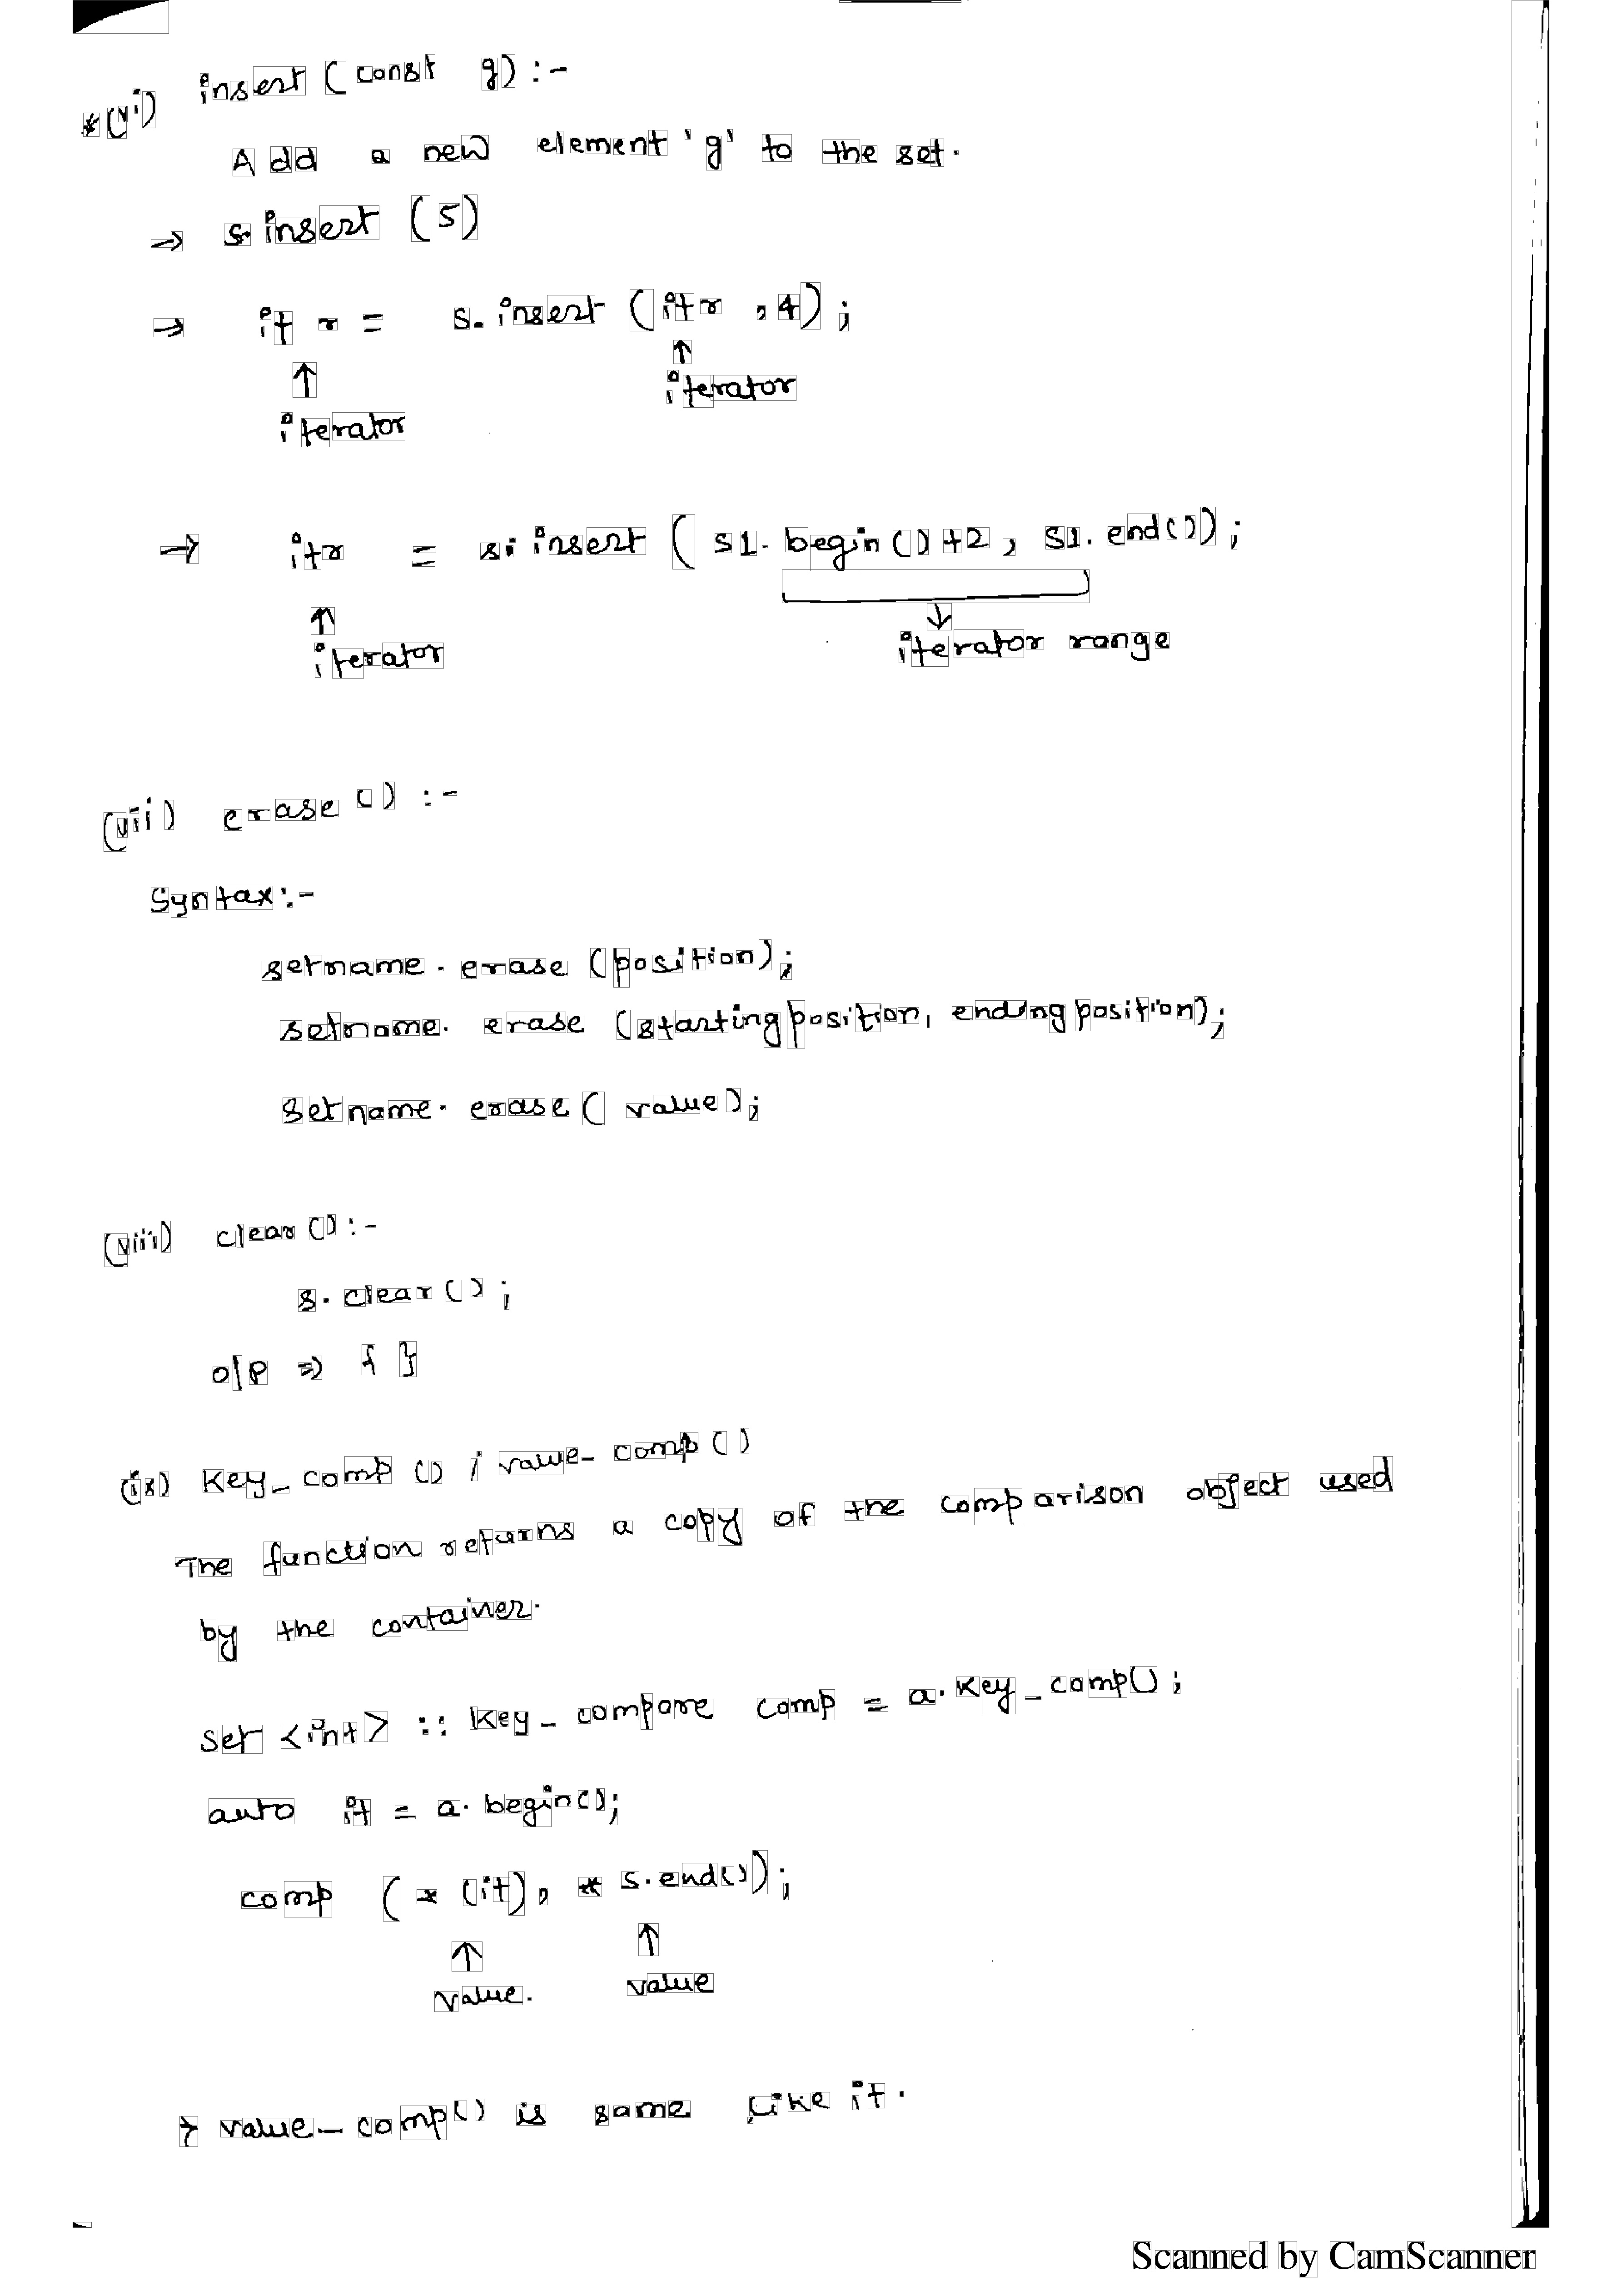 *(vi) insert (const g) :-
Add a new element 'g' to the set.
→ s.insert (5)
→ itr = s.insert (itr, 4);
↑ iterator
↑ iterator
→ itr = s.insert (s1.begin()+2, s1.end());
↑ iterator
↓ iterator range
(vii) erase() :-
Syntax:-
setname.erase (position);
setname.erase (startingposition, endingposition);
setname.erase( value);
(viii) clear() :-
s.clear();
o/p ⇒ { }
(ix) key_comp() / value_comp()
The function returns a copy of the comparison object used
by the container.
set <int> :: key_compare comp = a.key_comp();
auto it = a.begin();
comp (*(it), * s.end());
↑ value.
↑ value
→ value_comp() is same like it.
Scanned by CamScanner